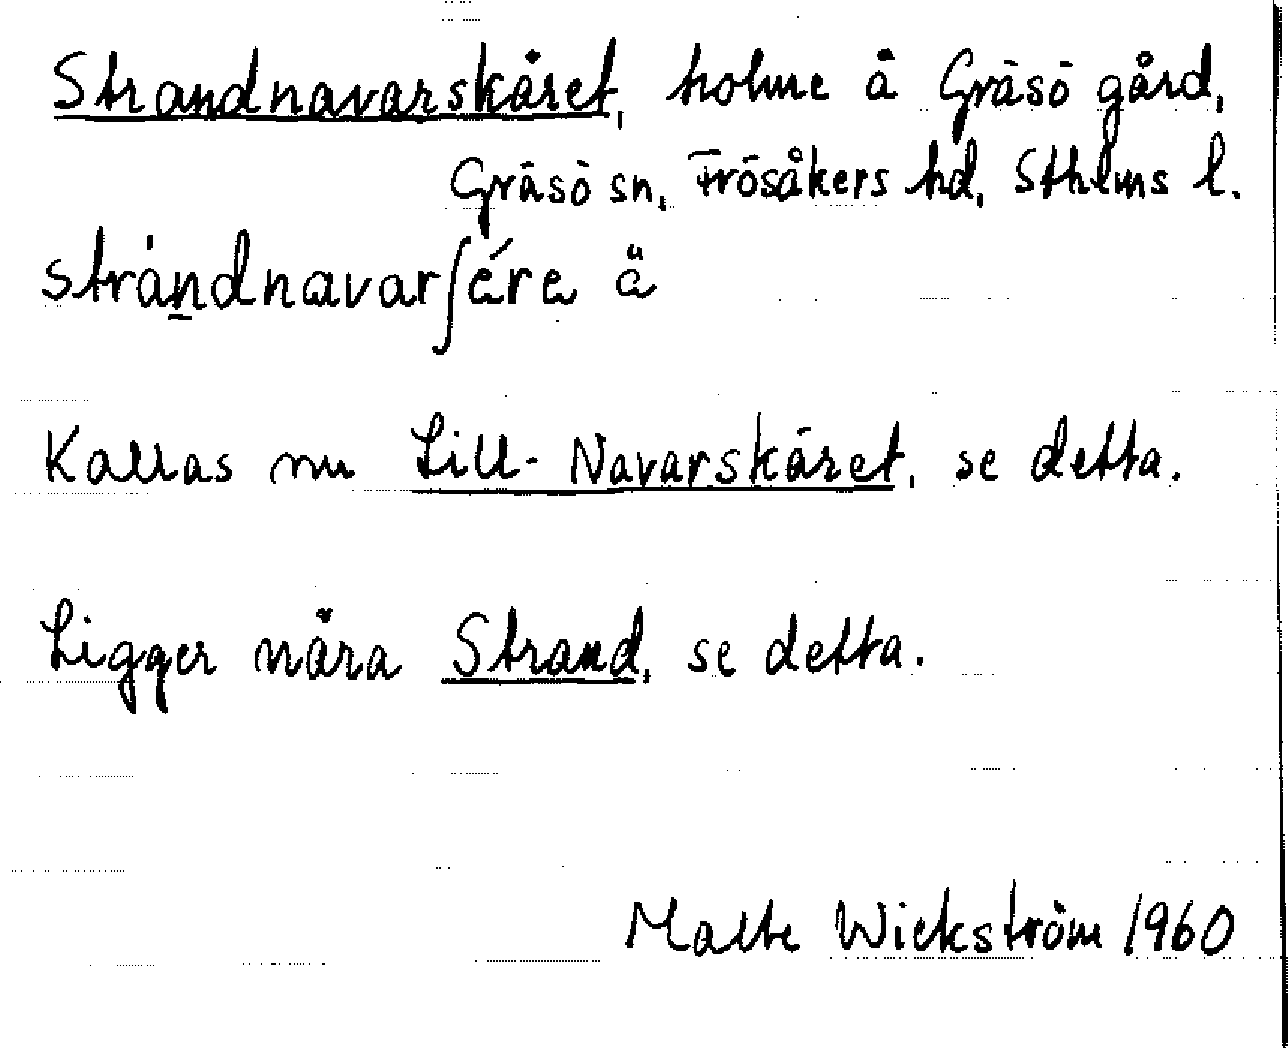 Strandnavarskäret, holme å Gräsö gård,
Gräsö sn, Frösåkers hd, Sthlms l.
stránd̲navarʃére ä
Kallas nu Lill-Navarskäret, se detta.
Ligger nära Strand, se detta.
Malte Wickström 1960